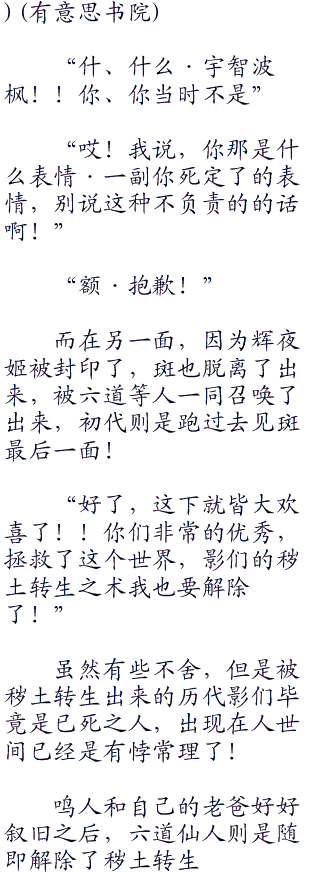 ) (有意思书院)
“什、什么·宇智波
枫！！你、你当时不是”
“哎！我说，你那是什
么表情·一副你死定了的表
情，别说这种不负责的的话
啊！”
“额·抱歉！”
而在另一面，因为辉夜
姬被封印了，斑也脱离了出
来，被六道等人一同召唤了
出来，初代则是跑过去见斑
最后一面！
“好了，这下就皆大欢
喜了！！你们非常的优秀，
拯救了这个世界，影们的秽
土转生之术我也要解除
了！”
虽然有些不舍，但是被
秽土转生出来的历代影们毕
竟是已死之人，出现在人世
间已经是有悖常理了！
鸣人和自己的老爸好好
叙旧之后，六道仙人则是随
即解除了秽土转生